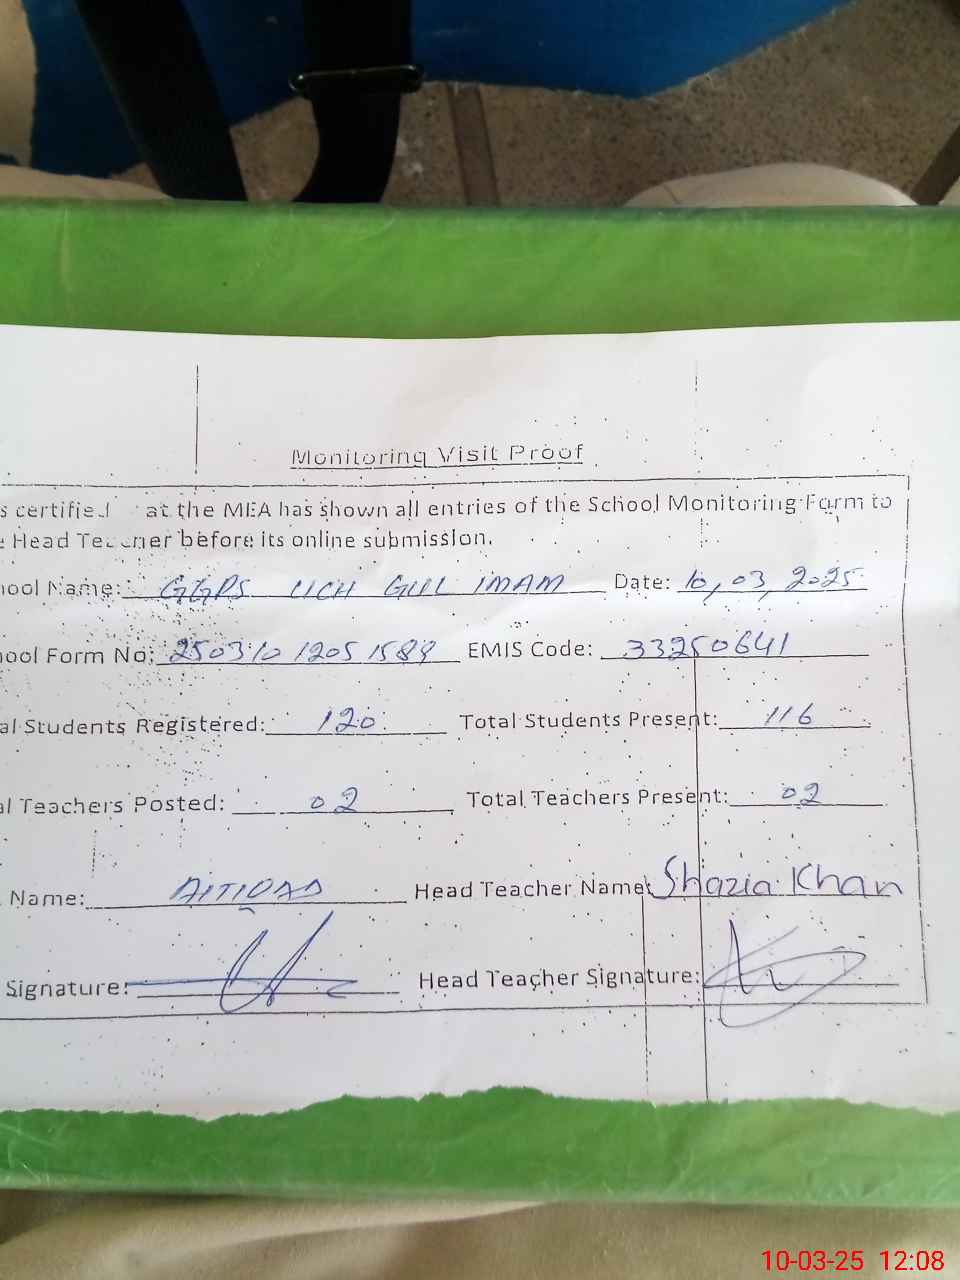 Monitoring Visit Proof
s certified at the MEA has shown all entries of the School Monitoring Form to
e Head Teacher before its online submission.
hool Name: GGPS UCH GUL IMAM Date: 10,03,2025
hool Form No: 250310 1205 1588 EMIS Code: 33250641
al Students Registered: 120 Total Students Present: 116
al Teachers Posted: 02 Total Teachers Present: 02
Name: Head Teacher Name: Shazia Khan
Signature: Head Teacher Signature:
10-03-25 12:08